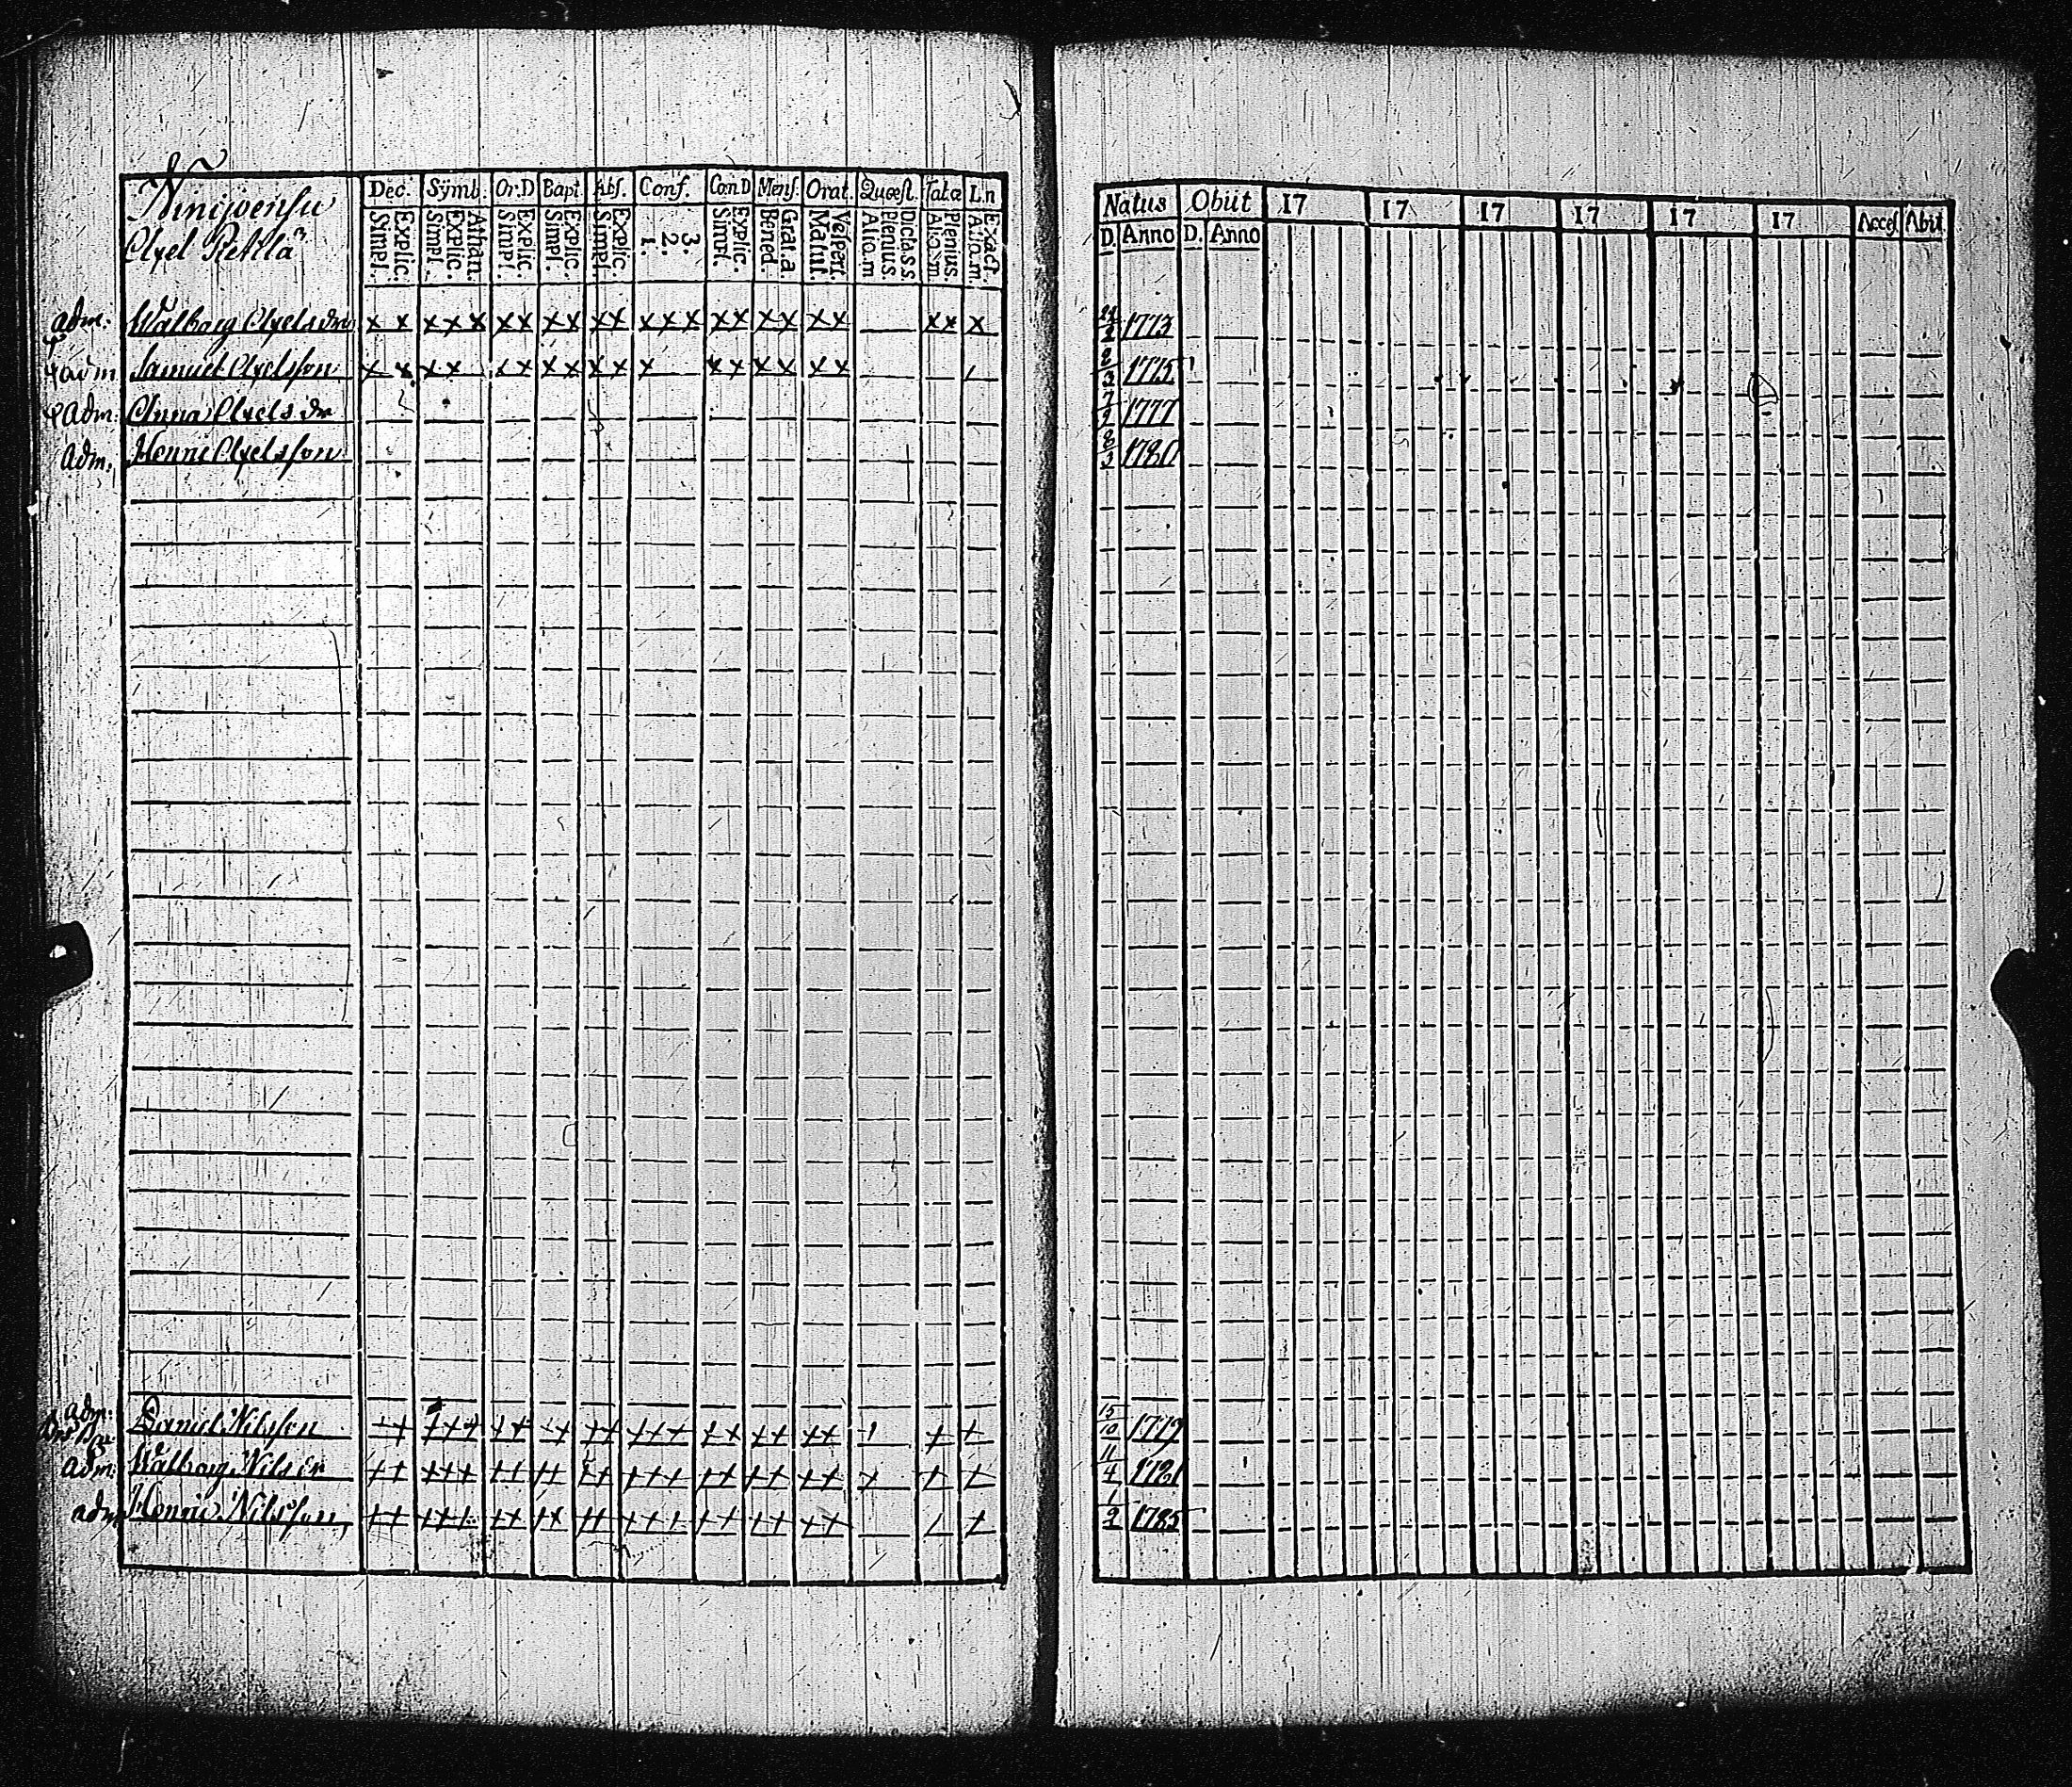 Axel Pekkla
Dec. Symb. Or.D Bapt. Abs. Conf. Con.D Mens. Orat. Quæst. Tab.a L.n
Explic. Simpl. Athan. Explic. Simpl. Explic. Simpl. Explic. Simpl. Explic. Simpl. 3. 2. 1. Explic. Simpl. Grat.a Bened. Vespert. Matut. Dicta.s.s Plenius Alio.m Plenius. Alio.m Exact. Alio.m
Natus Obiit 17 17 17 17 17 17 Acces. Abiit
D. Anno D. Anno
adm: Walborg Axelsdr x x x x x x x x x x x x x x x x x x x x x x x 1773
adm Samuel Axelsson x x x x x x x x x x x x x x x x x 8/3 1775
Adm: Anna Axelsdr 7/9 1777
Adm: Henric Axelsson 8/3 1780
adm: Daniel Nilsson 15/10 1779
Adm: Walborg Nilsdr 11/4 1781
adm Henric Nilsson 1/9 1785